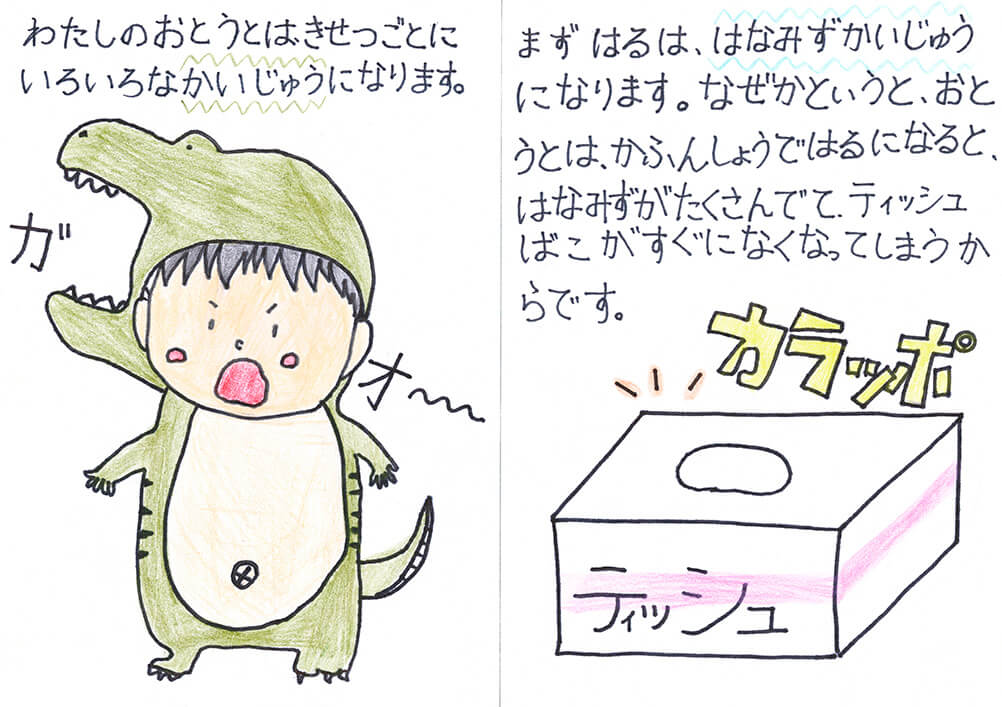 わたしのおとうとは、きせつごとに
いろいろなかいじゅうになります。
ガ
オ〜
まずはるは、はなみずかいじゅう
になります。なぜかというと、おと
うとは、かふんしょうではるになると、
はなみずがたくさんでて、ティッシュ
ばこがすぐになくなってしまうか
らです。
カラッポ
ティッシュ